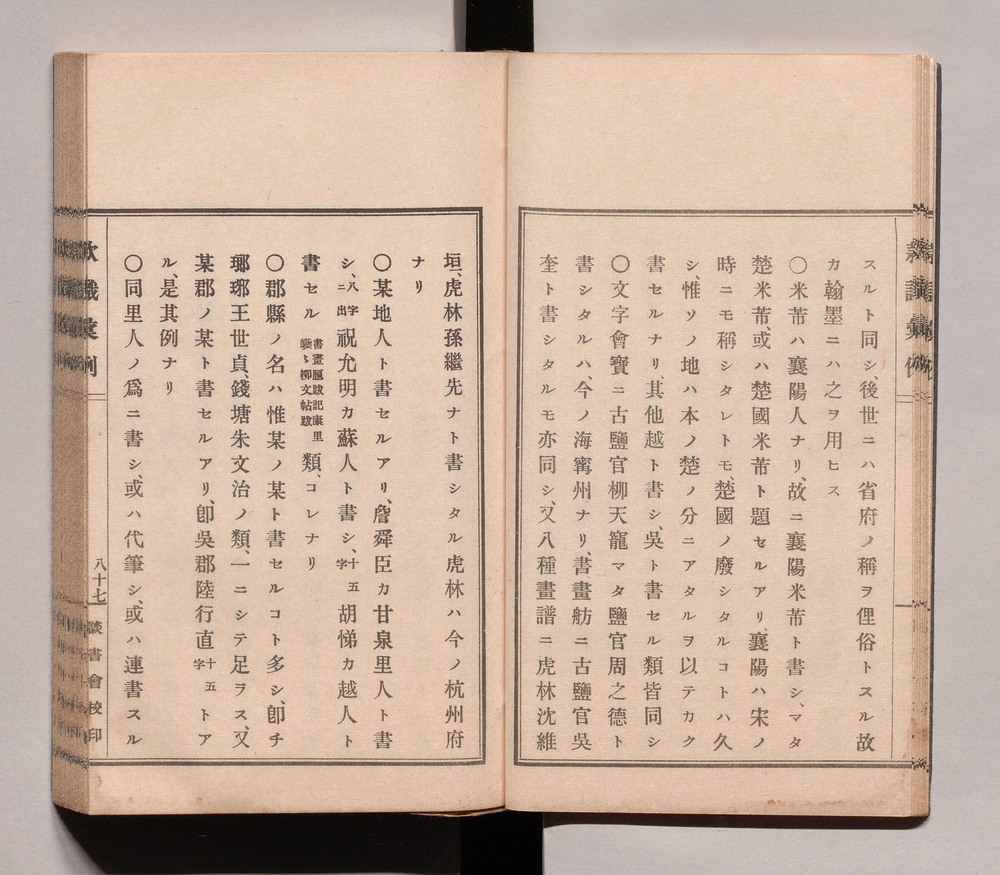 スルト同シ、後世ニハ省府ノ稱ヲ俚俗トスル故
カ翰墨ニハ之ヲ用ヒス
〇米芾ハ襄陽人ナリ、故ニ襄陽米芾ト書シ、マタ
楚米芾、或ハ楚國米芾ト題セルアリ、襄陽ハ宋ノ
時ニモ稱シタレトモ、楚國ノ廢シタルコトハ久
シ、惟ソノ地ハ本ノ楚ノ分ニアタルヲ以テカク
書セルナリ、其他越ト書シ、吳ト書セル類皆同シ
〇文字會寳ニ古鹽官柳天寵マタ鹽官周之德ト
書シタルハ、今ノ海寗州ナリ、書畫舫ニ古鹽官吳
奎ト書シタルモ亦同シ、又八種畫譜ニ虎林沈維
垣、虎林孫繼先ナト書シタル虎林ハ今ノ杭州府
ナリ
〇某地人ト書セルアリ、詹舜臣カ甘泉里人ト書
シ、八字ニ出祝允明カ蘇人ト書シ、十五字胡悌カ越人ト
書セル書畫題跋記康里巙〻柳文帖跋類、コレナリ
〇郡縣ノ名ハ惟某ノ某ト書セルコト多シ、卽チ
瑯琊王世貞、錢塘朱文治ノ類、一ニシテ足ラス、又
某郡ノ某ト書セルアリ、卽吳郡陸行直十五字トア
ル、是其例ナリ
〇同里人ノ爲ニ書シ、或ハ代筆シ、或ハ連書スル
款識彙例
八十七
談書會校印